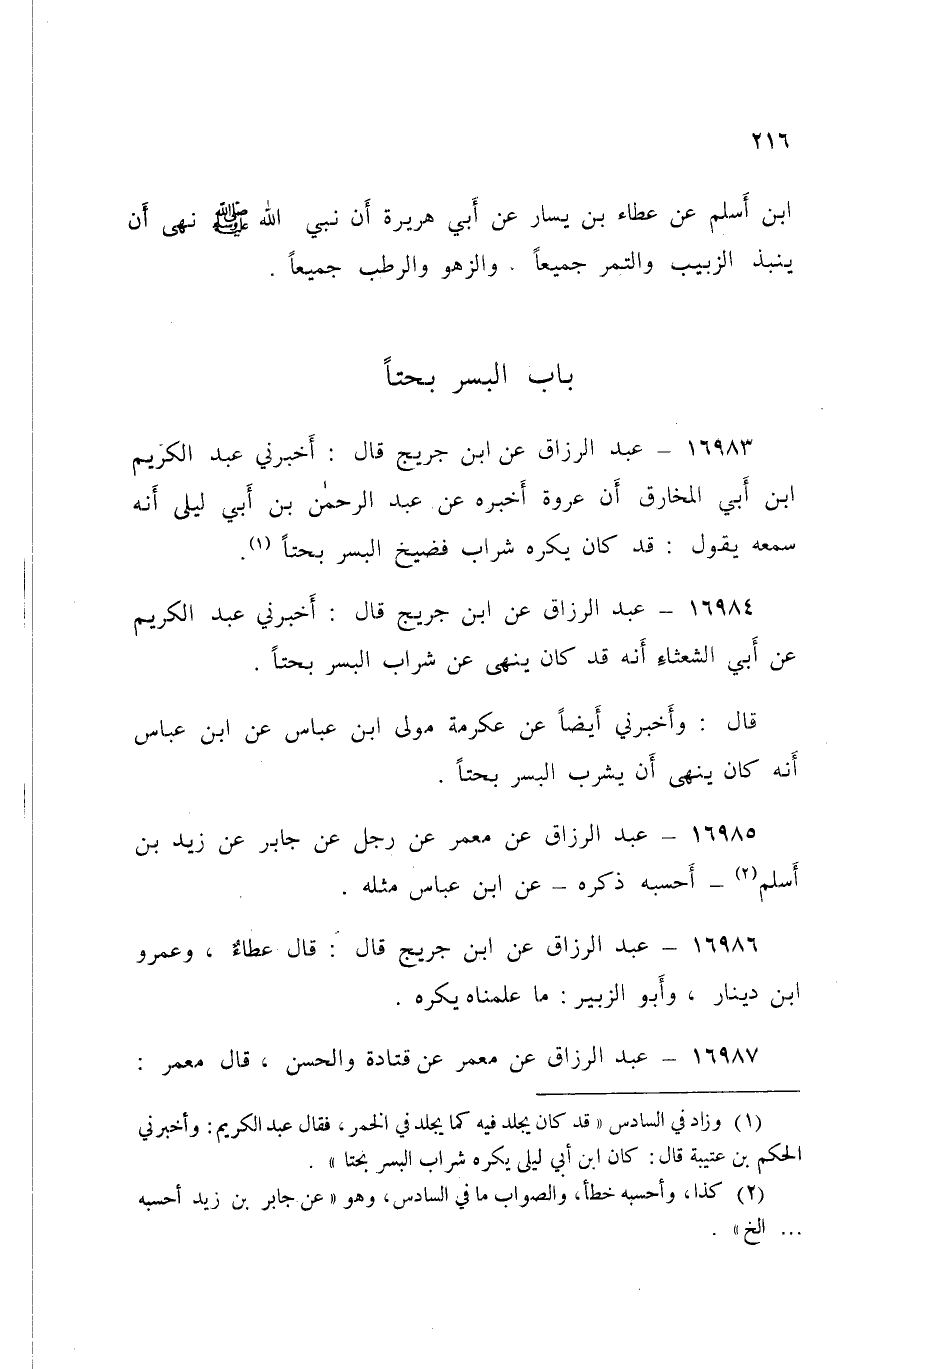 ٢١٦
ابن أَسلم عن عطاء بن يسار عن أَبي هريرة أَن نبي الله ﷺ نهى أَن
ينبذ الزبيب والتمر جميعاً . والزهو والرطب جميعاً .
باب البسر بحتاً
١٦٩٨٣ – عبد الرزاق عن ابن جريج قال : أَخبرني عبد الكريم
ابن أَبي المخارق أَن عروة أَخبره عن عبد الرحمٰن بن أَبي ليلى أَنه
سمعه يقول : قد كان يكره شراب فضيخ البسر بحتاً (١).
١٦٩٨٤ – عبد الرزاق عن ابن جريج قال : أَخبرني عبد الكريم
عن أَبي الشعثاءِ أَنه قد كان ينهى عن شراب البسر بحتاً .
قال : وأَخبرني أَيضاً عن عكرمة مولى ابن عباس عن ابن عباس
أَنه كان ينهى أَن يشرب البسر بحتاً .
١٦٩٨٥ – عبد الرزاق عن معمر عن رجل عن جابر عن زيد بن
أَسلم(٢) – أَحسبه ذكره – عن ابن عباس مثله .
١٦٩٨٦ – عبد الرزاق عن ابن جريج قال : قال عطاءٌ ، وعمرو
ابن دينار ، وأَبو الزبير : ما علمناه يكره .
١٦٩٨٧ – عبد الرزاق عن معمر عن قتادة والحسن ، قال معمر :
(١) وزاد في السادس « قد كان يجلد فيه كما يجلد في الخمر ، فقال عبد الكريم : وأخبرني
الحكم بن عتيبة قال : كان ابن أبي ليلى يكره شراب البسر بحتا » .
(٢) كذا ، وأحسبه خطأ ، والصواب ما في السادس ، وهو « عن جابر بن زيد أحسبه
... الخ » .